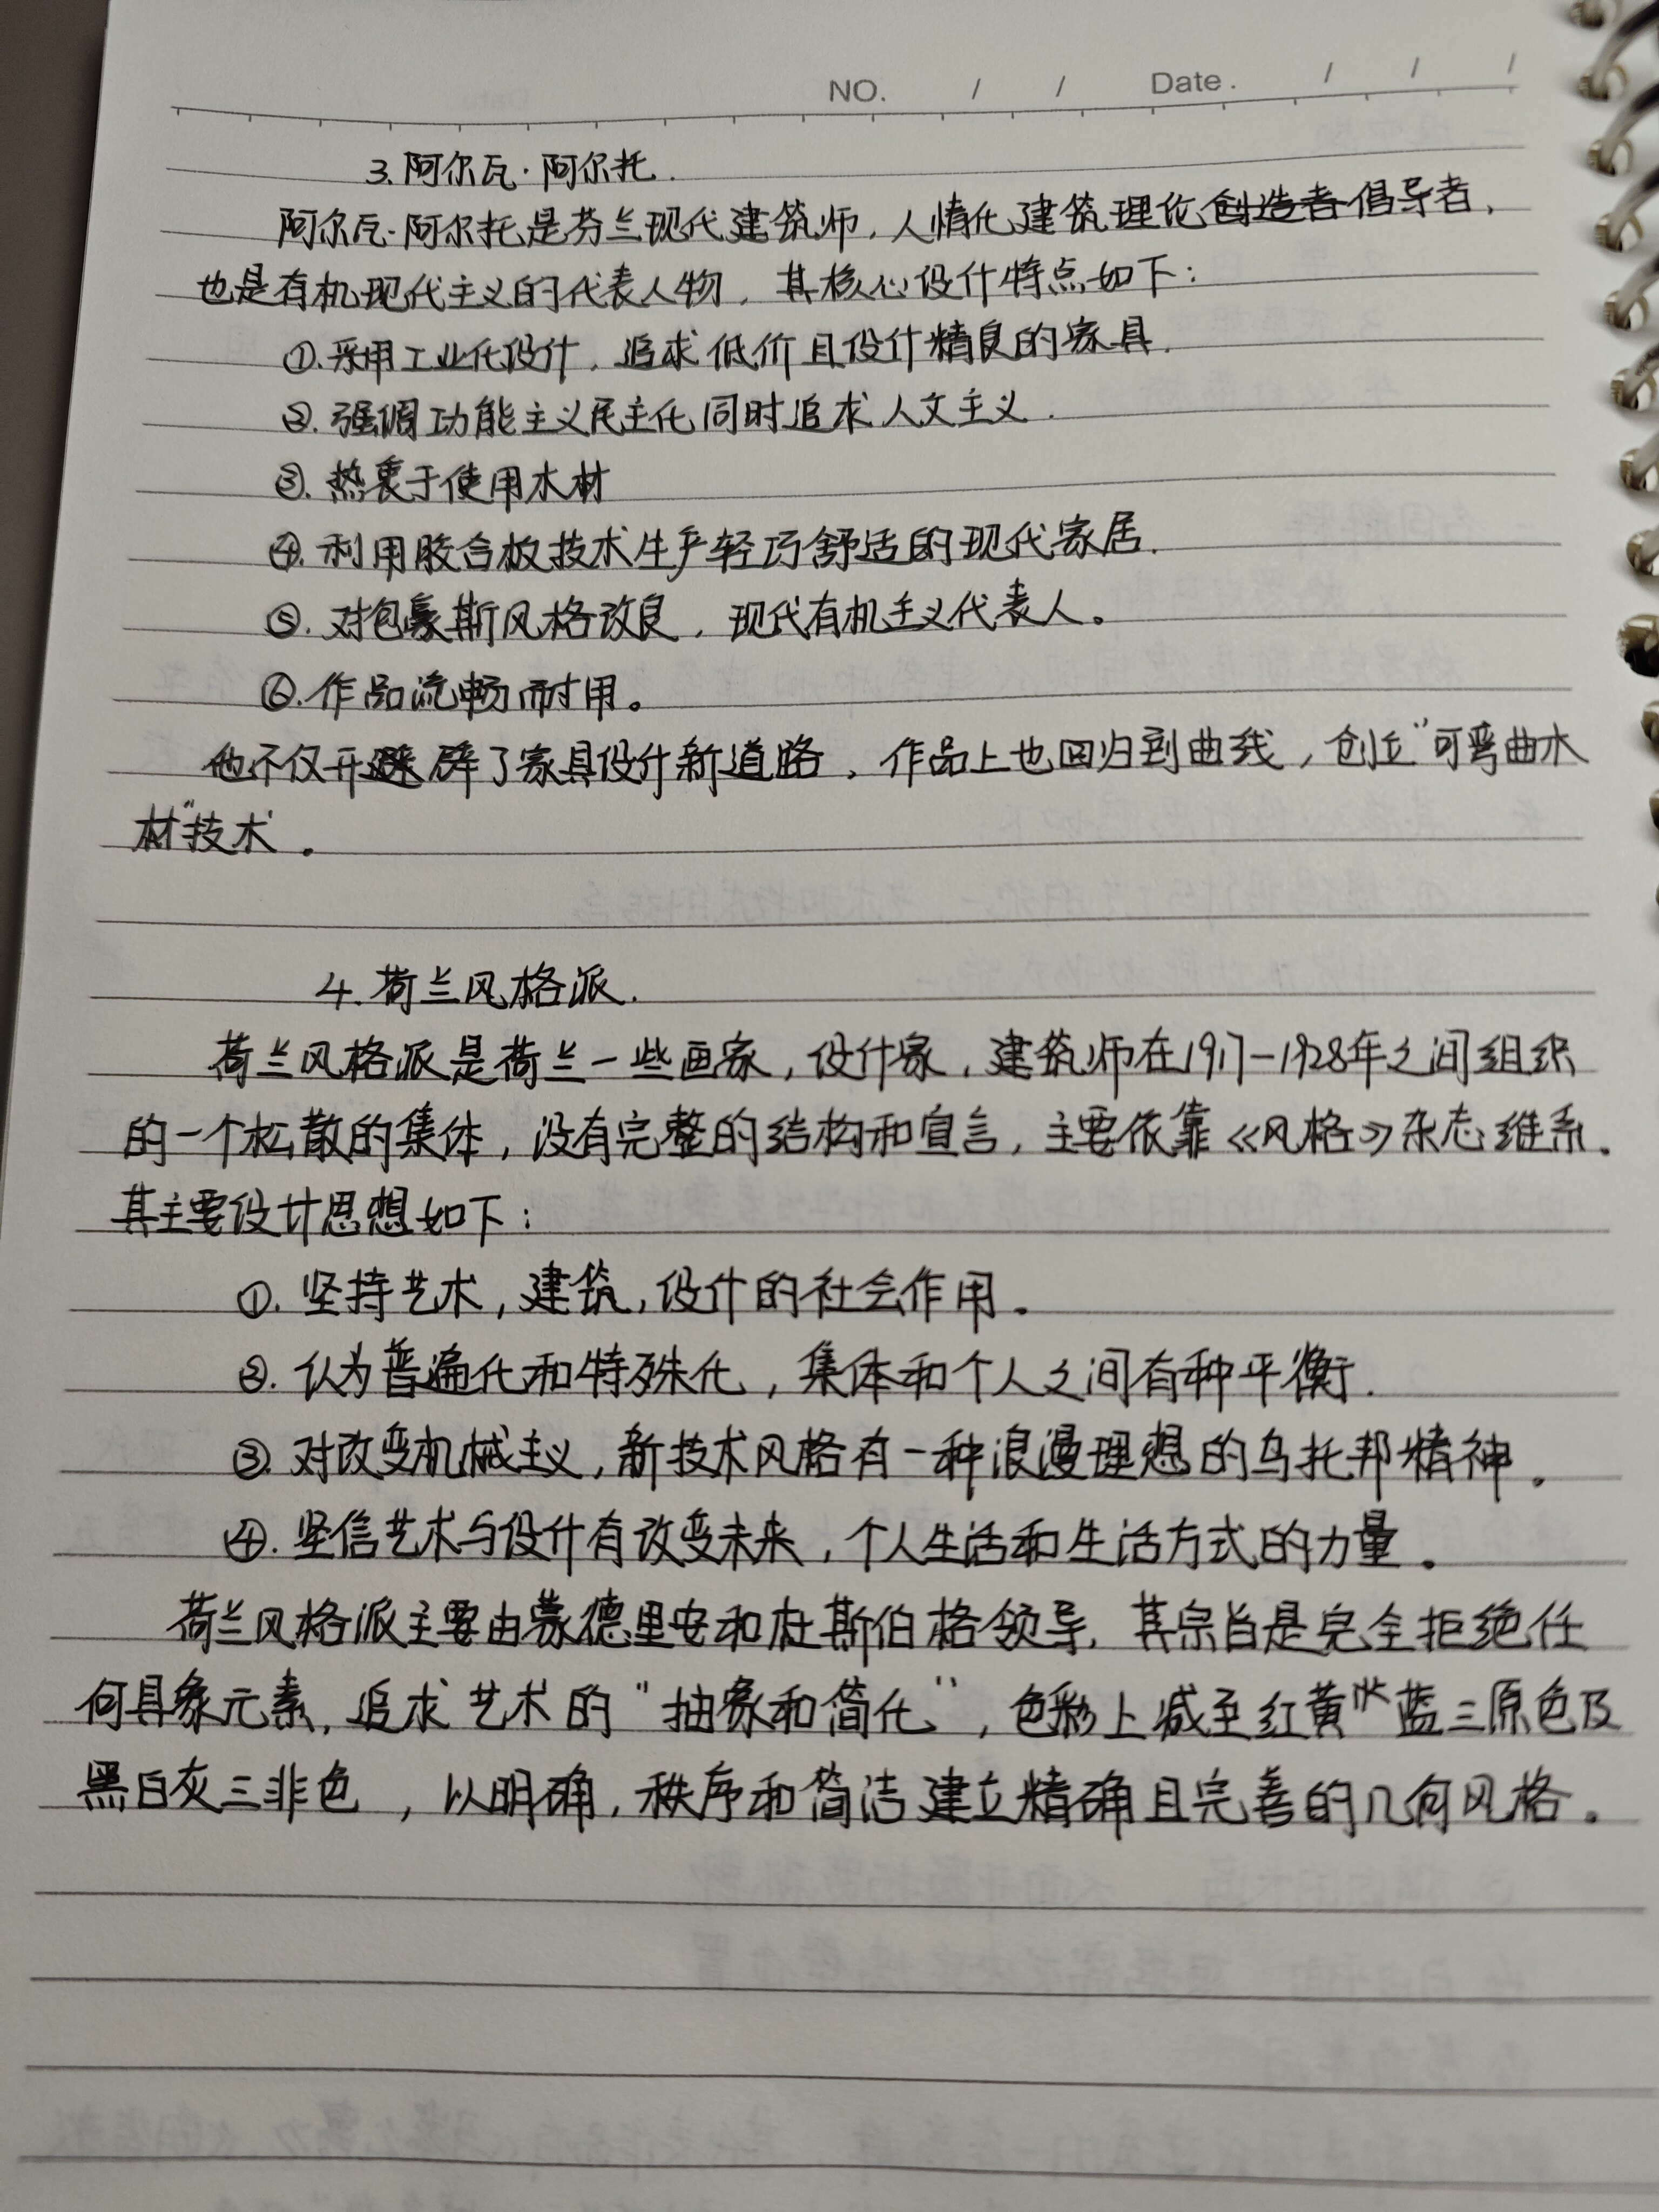 NO. / / Date. / / /
3.阿尔瓦·阿尔托.
阿尔瓦·阿尔托是芬兰现代建筑师,人情化建筑理论创造者倡导者,
也是有机现代主义的代表人物,其核心设计特点如下:
①.采用工业化设计,追求低价且设计精良的家具.
②.强调功能主义民主化同时追求人文主义.
③.热衷于使用木材
④.利用胶合板技术生产轻巧舒适的现代家居.
⑤.对包豪斯风格改良,现代有机主义代表人。
⑥.作品流畅而耐用。
他不仅开辟了家具设计新道路,作品上也回归到曲线,创立“可弯曲木
材”技术。
4.荷兰风格派.
荷兰风格派是荷兰一些画家,设计家,建筑师在1917-1928年之间组织
的一个松散的集体,没有完整的结构和宣言,主要依靠《风格》杂志维系.
其主要设计思想如下:
①.坚持艺术,建筑,设计的社会作用。
②.认为普遍化和特殊化,集体和个人之间有种平衡.
③.对改变机械主义,新技术风格有一种浪漫理想的乌托邦精神。
④.坚信艺术与设计有改变未来,个人生活和生活方式的力量。
荷兰风格派主要由蒙德里安和杜斯伯格领导,其宗旨是完全拒绝任
何具象元素,追求艺术的“抽象和简化”,色彩上减至红黄蓝三原色及
黑白灰三非色,以明确,秩序和简洁建立精确且完善的几何风格。